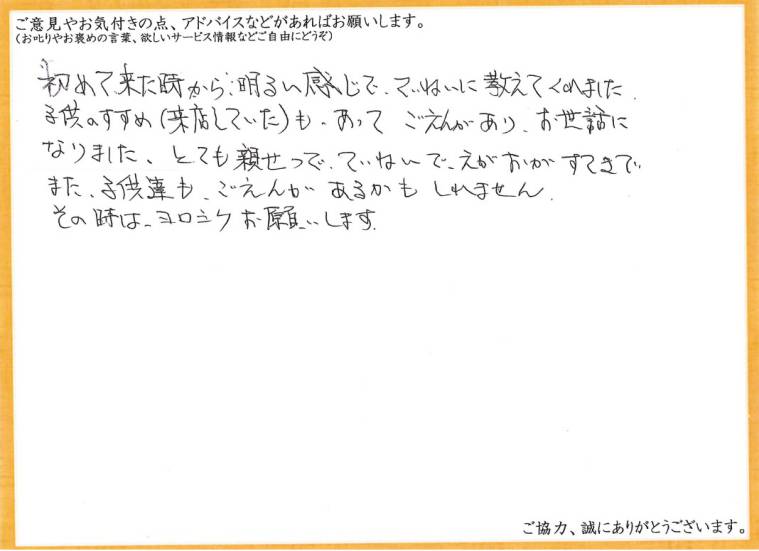 ご意見やお気付きの点、アドバイスなどがあればお願いします。
(お叱りやお褒めの言葉、欲しいサービス情報などご自由にどうぞ)
初めて来た時から、明るい感じで、ていねいに教えてくれました。
子供のすすめ(来店していた)も、あって ごえんがあり、お世話に
なりました、とても親せつで、ていねいで、えがおがすてきで
また、子供達も、ごえんが あるかも しれません。
その時は、ヨロシクお願いします。
ご協力、誠にありがとうございます。